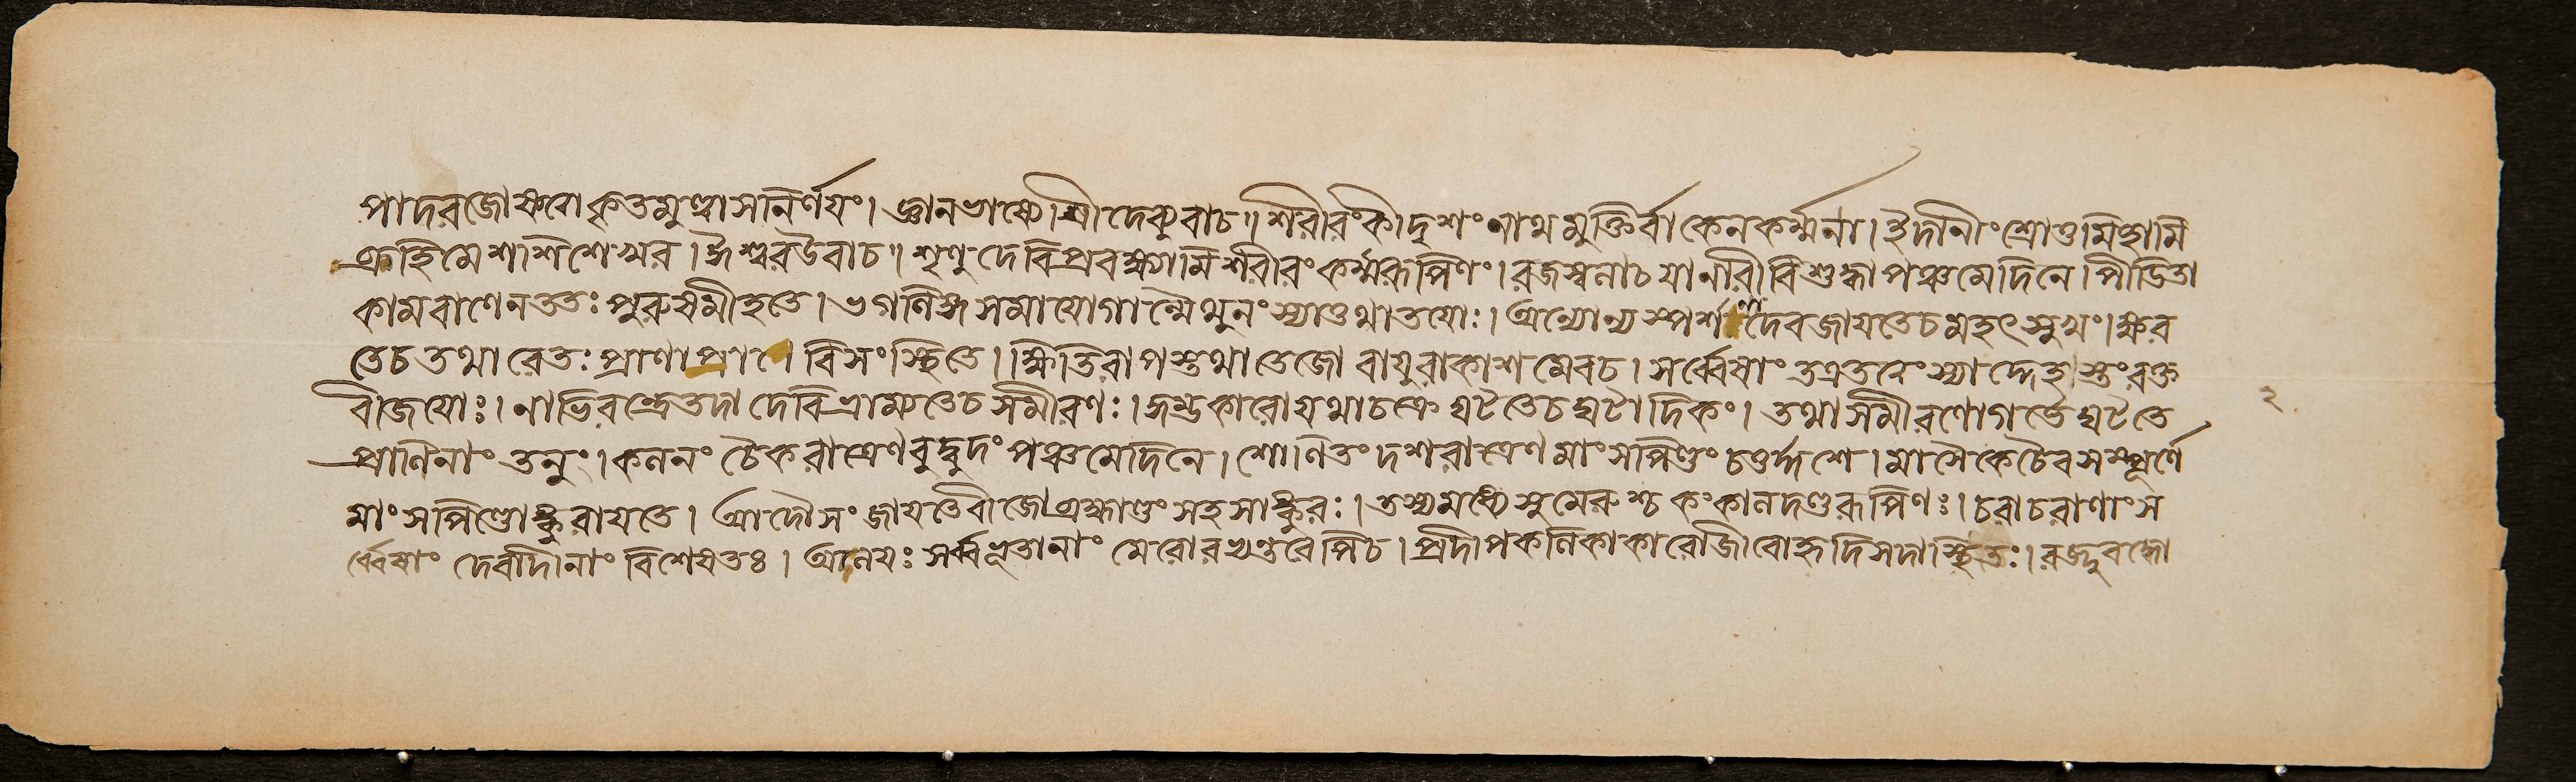 পাদরজো কৃতমুপাসনির্ণয়ং। জ্ঞানভাষ্যে। শ্রীদেব্যুবাচ॥ শরীরং কীদৃশং নাথ মুক্তির্বা কেন কর্ম্মনা। ইদানীং শ্রোতুমিছামি
ব্রূহি মে শশিশেখর। ঈশ্বর উবাচ॥ শৃণু দেবি প্রবক্ষ্যামি শরীরং কর্ম্মরূপিণং। রজস্বলা চ যা নারী বিশুদ্ধা পঞ্চমে দিনে। পীডিতা
কামবাণেন ততঃ পুরুষমীহতে। ভগলিঙ্গসমাযোগান্মৈথুনং স্যাত্তথা তযোঃ। অন্যোন্যস্পর্শনাদেব জাযতে চ মহৎসুখং। ক্ষর
তে চ তথা রেতঃ প্রাণাপ্রাণে বিসংস্থিতে। ক্ষিতিরাপস্তথা তেজো বাযুরাকাশমেব চ। সর্ব্বেষাং তত্র স্যাদ্দেহস্তং রক্ত
বীজযোঃ। নাভিরন্ধ্রে তদা দেবি ভ্রাম্যতে চ সমীরণঃ। কুম্ভকারো যথা চক্রে ঘটতে চ ঘটাদিকং। তথা সমীরণো গর্ভে ঘটতে
প্রাণিনাং তনুং। কললং চৈকরাত্রেণ বুদ্বুদং পঞ্চমে দিনে। শোণিতং দশরাত্রেণ মাংসপিণ্ডং চতুর্দ্দশে। মাসৈকে চৈব সম্পূর্ণে
মাংসপিণ্ডোঙ্কুরাযতে। আদৌ সংজাযতে বীজো ব্রহ্মাণ্ডং সহসাঙ্কুরঃ। তস্য মধ্যে সুমেরুশ্চ কংকালদণ্ডরূপিণঃ। চরাচরাণাং স
র্ব্বেষাং দেবাদীনাং বিশেষতঃ। আলযঃ সর্ব্বভূতানাং মেরোরভ্যন্তরেপি চ। প্রদীপকলিকাকারো জীবো হৃদি সদা স্থিতঃ। রজ্জুবদ্ধো
২